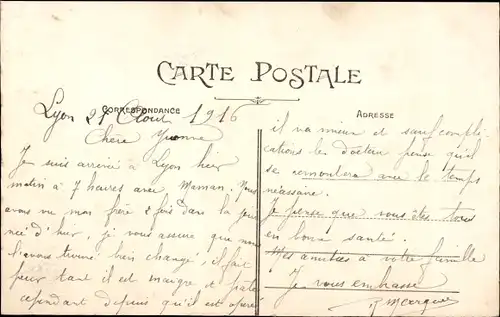 CARTE POSTALE
CORRESPONDANCE
ADRESSE
Lyon 21 Aout 1916
Chère Yvonne
Je suis arrivé à Lyon hier
matin à 7 heures avec Maman. Nous
avons vu mon frère 2 fois dans la jour
née d'hier, je vous assure que nous
l'avons trouvé bien changé, il fait
peur tant il est maigre et pale
cependant depuis qu'il est opéré
il va mieux et sauf compli
cations le docteur pense qu'il
se remontera avec le temps
nécessaire.
Je pense que vous êtes tous
en bonne santé.
Mes amitiés à votre famille
Je vous embrasse